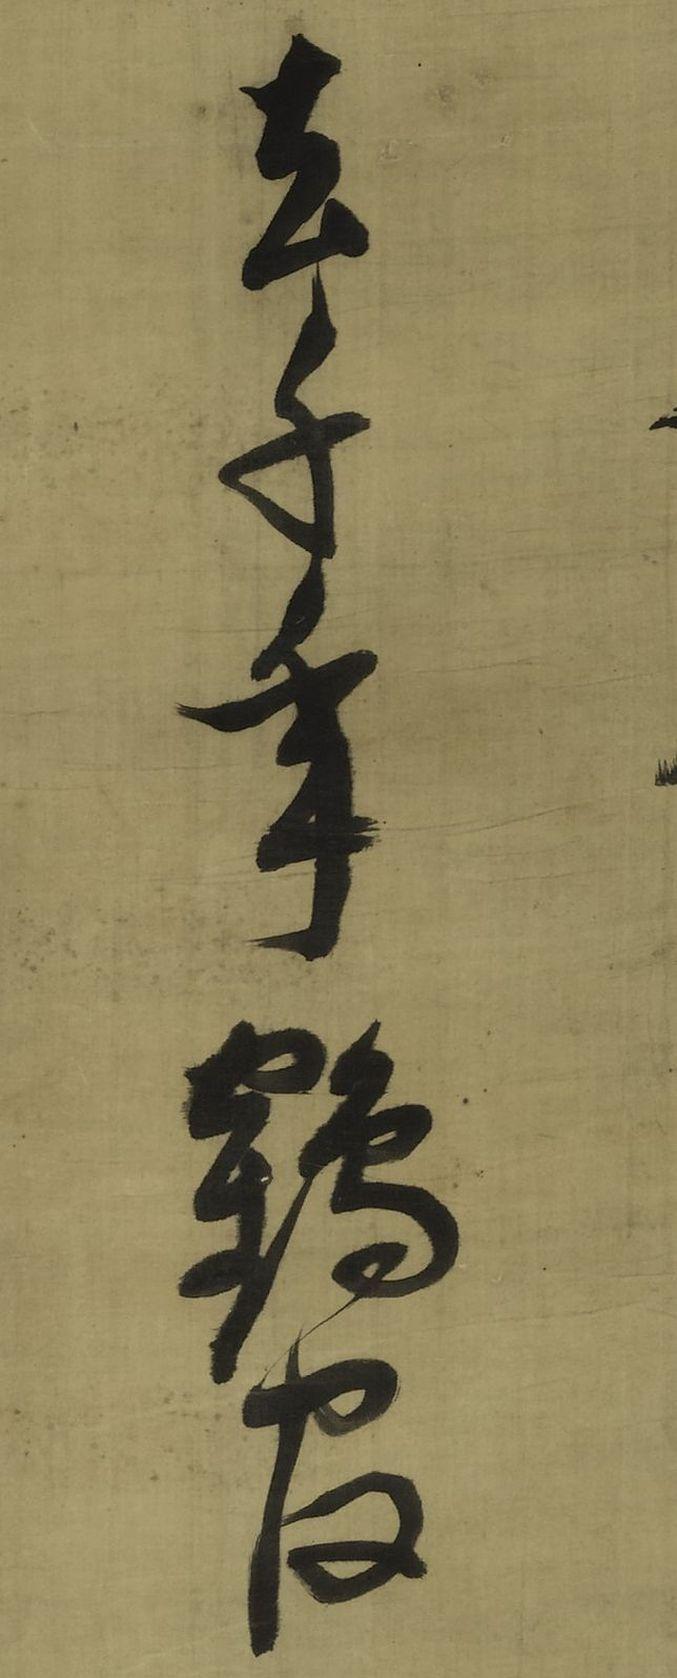 去千年鶴